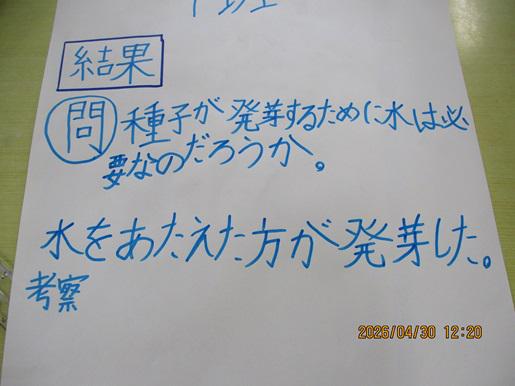 結果
問 種子が発芽するために水は必
要なのだろうか。
水をあたえた方が発芽した。
考察
2026/04/30 12:20